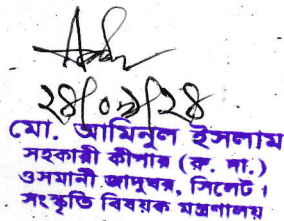 ২৪/০৯/২৪
মো. আমিনুল ইসলাম
সহকারী কীপার (রু. দা.)
ওসমানী জাদুঘর, সিলেট।
সংস্কৃতি বিষয়ক মন্ত্রণালয়